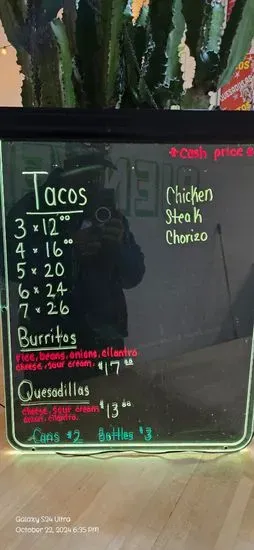 *Cash price*
Tacos
3 x 12⁰⁰
4 x 16⁰⁰
5 x 20
6 x 24
7 x 26
Chicken
Steak
Chorizo
Burritos
rice, beans, onions, cilantro
cheese, sour cream. $17⁰⁰
Quesadillas
cheese, sour cream $13⁰⁰
onion, cilantro.
Cans $2 Bottles $3
Galaxy S24 Ultra
October 22, 2024 6:35 PM